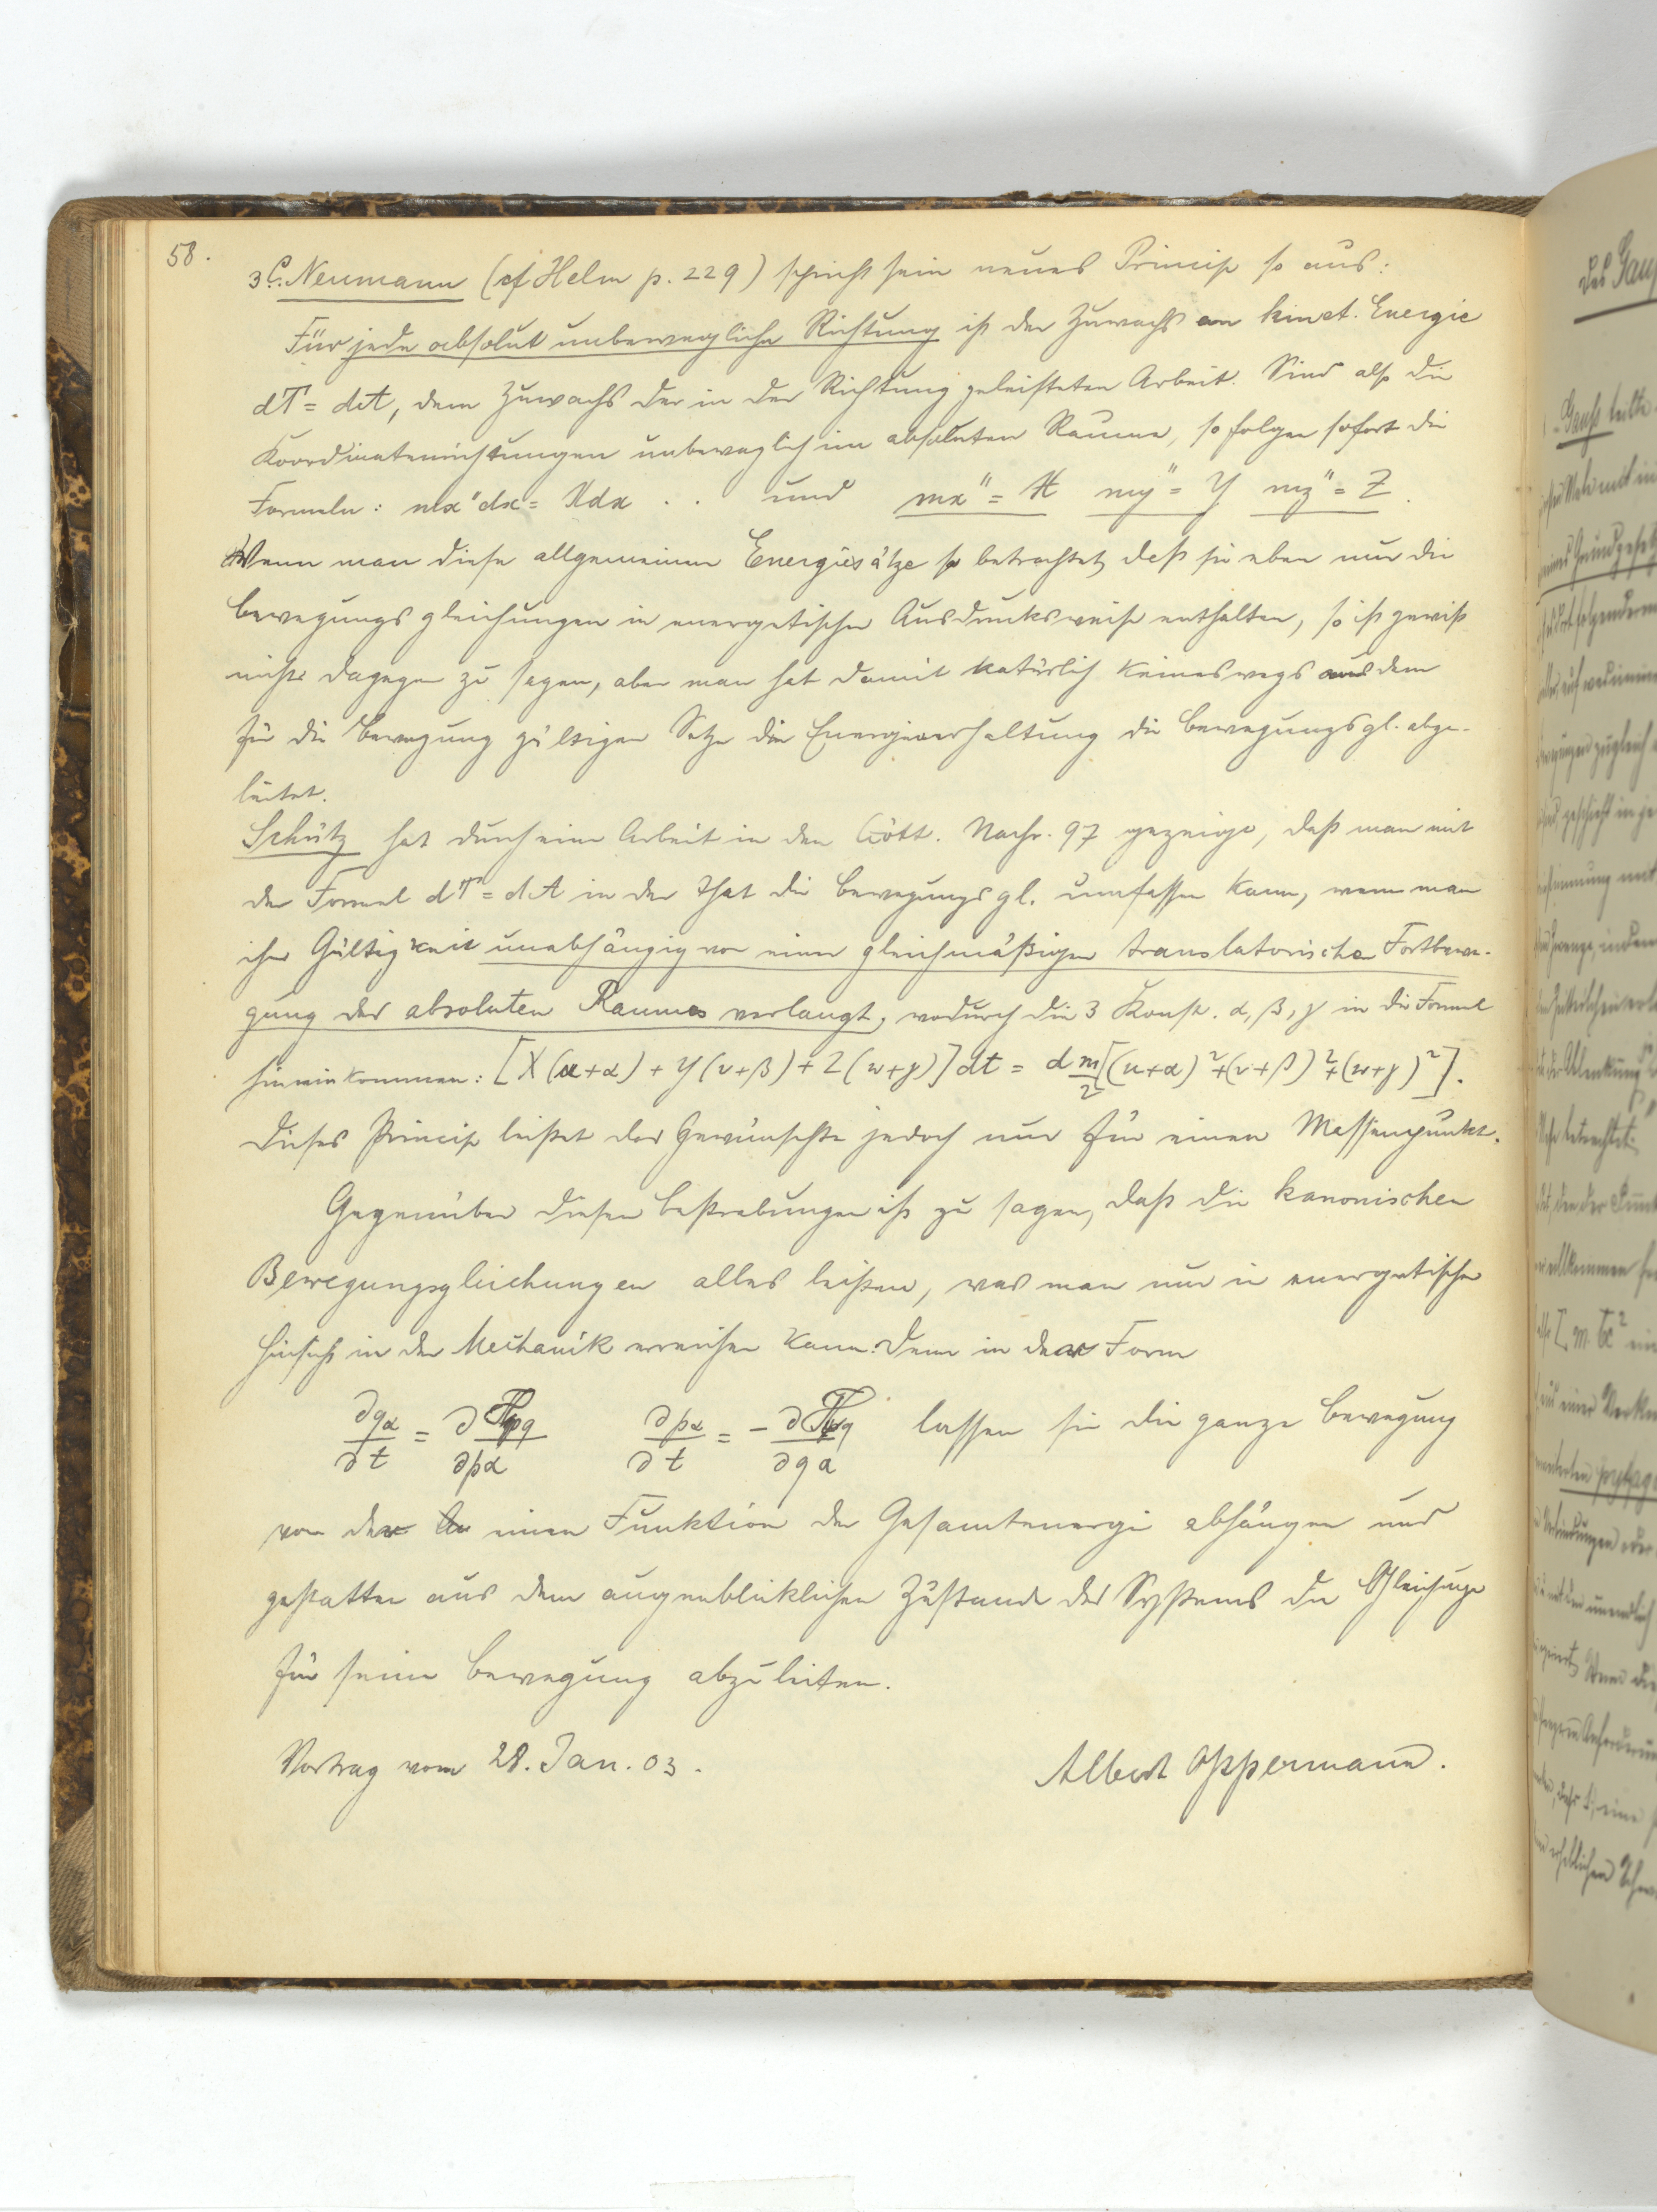 58.
3 C. Neumann (cf Helm p. 229) spricht sein neues Princip so aus:
Für jede absolut unbewegliche Richtung ist der Zuwachs an kinet. Energie
dT = dA, dem Zuwachs der in der Richtung geleisteten Arbeit. Sind also die
Koordinatenrichtungen unbeweglich im absoluten Raume, so folgen sofort die
Formeln: mx"dx = Xdx . . und mx" = X my" = Y mz" = Z.
Wenn man diese allgemeinen Energiesätze so betrachtet, daß sie eben nur die
Bewegungsgleichungen in energetischer Ausdrucksweise enthalten, so ist gewiß
nichts dagegen zu sagen, aber man hat damit natürlich keineswegs aus dem
für die Bewegung gültigen Satze der Energieerhaltung die Bewegungsgl. abge-
leitet.
Schütz hat durch eine Arbeit in den Gött. Nachr. 97 gezeigt, daß man mit
der Formel dT = dA in der That die Bewegungsgl. umfassen kann, wenn man
ihre Gültigkeit unabhängig von einer gleichmäßigen translatorischen Fortbewe-
gung des absoluten Raumes verlangt, wodurch die 3 Konst. α, β, γ in die Formel
hineinkommen: [X(u+α) + Y(v+β) + Z(w+γ)]dt = d m/2[(u+α)²+(v+β)²+(w+γ)²].
Dieses Princip leistet das Gewünschte jedoch nur für einen Massenpunkt.
Gegenüber diesen Bestrebungen ist zu sagen, daß die kanonischen
Bewegungsgleichungen alles leisten, was man nur in energetischer
Hinsicht in der Mechanik erreichen kann. Denn in der Form
∂qα/∂t = ∂Tpq/∂pα ∂pα/∂t = -∂Tpq/∂qα lassen sie die ganze Bewegung
von der einen Funktion der Gesamtenergie abhängen und
gestatten aus dem augenblicklichen Zustande des Systems die Gleichungen
für seine Bewegung abzuleiten.
Vortrag vom 28. Jan. 03. Albert Oppermann.